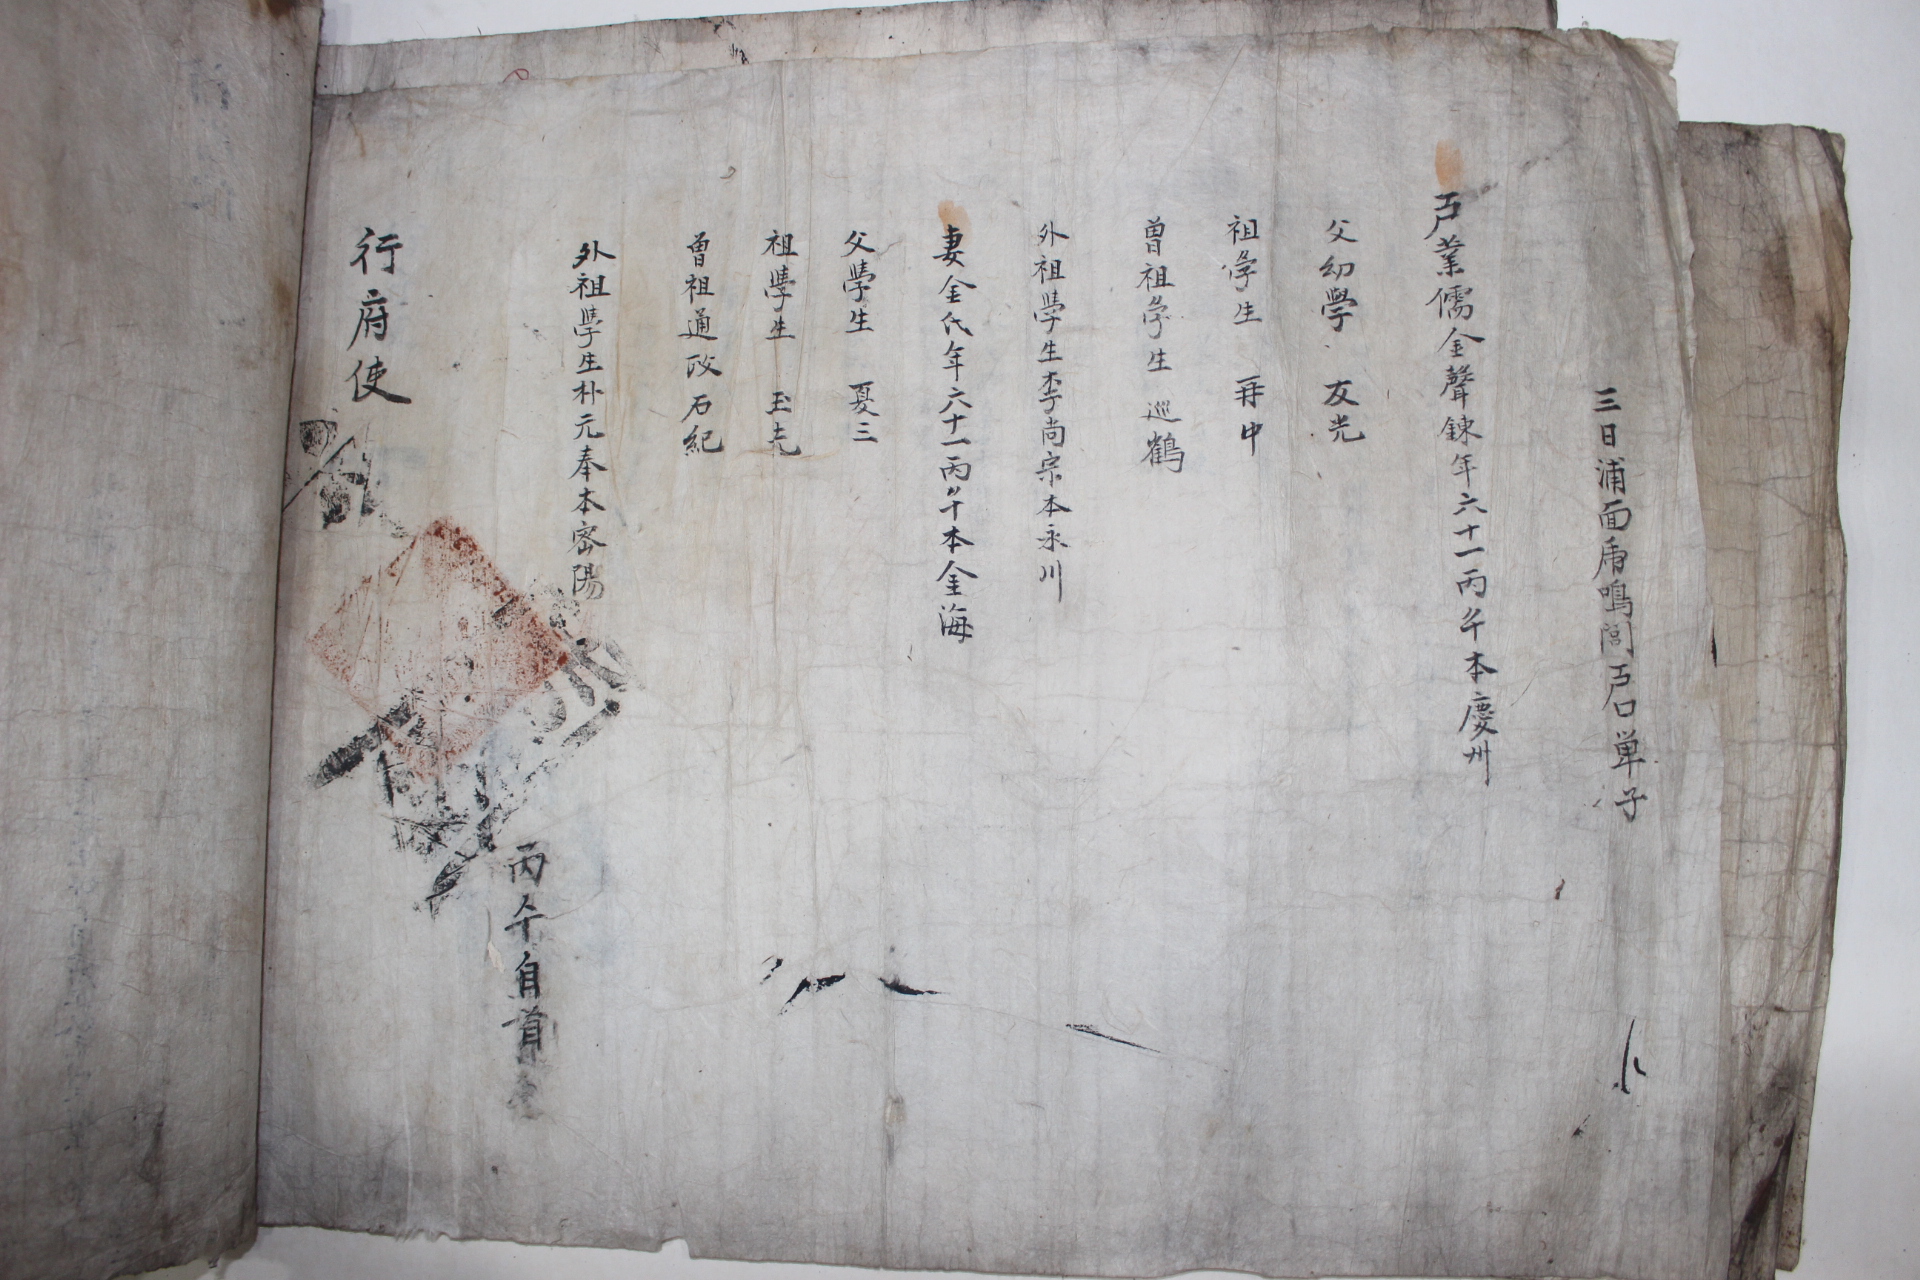 三日浦面鳥鳴閭戸口单子
戸業儒金聲鍊年六十一丙午本慶州
父幼學 友光
祖學生 再中
曽祖學生 巡鶴
外祖學生李尚宗本永川
妻金氏年六十一丙午本金海
父學生 夏三
祖學生 玉先
曽祖通政石紀
外祖學生朴元奉本密陽
丙午自首
行府使